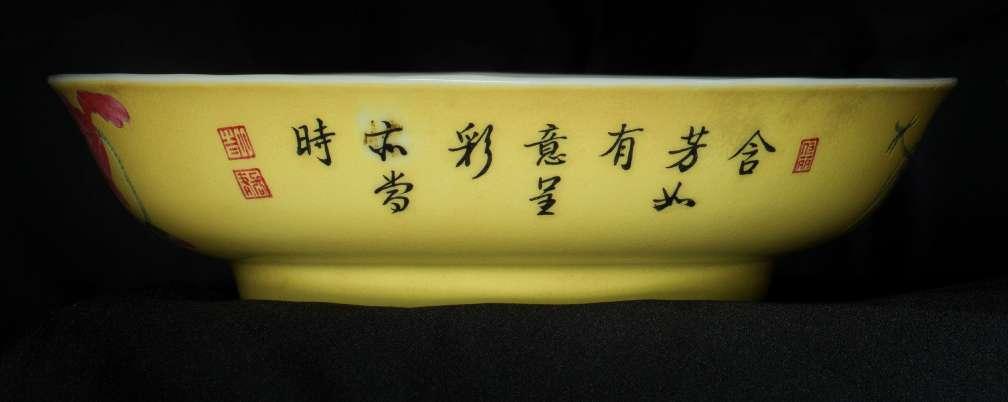 含
芳如
有
意呈
彩
亦當
時